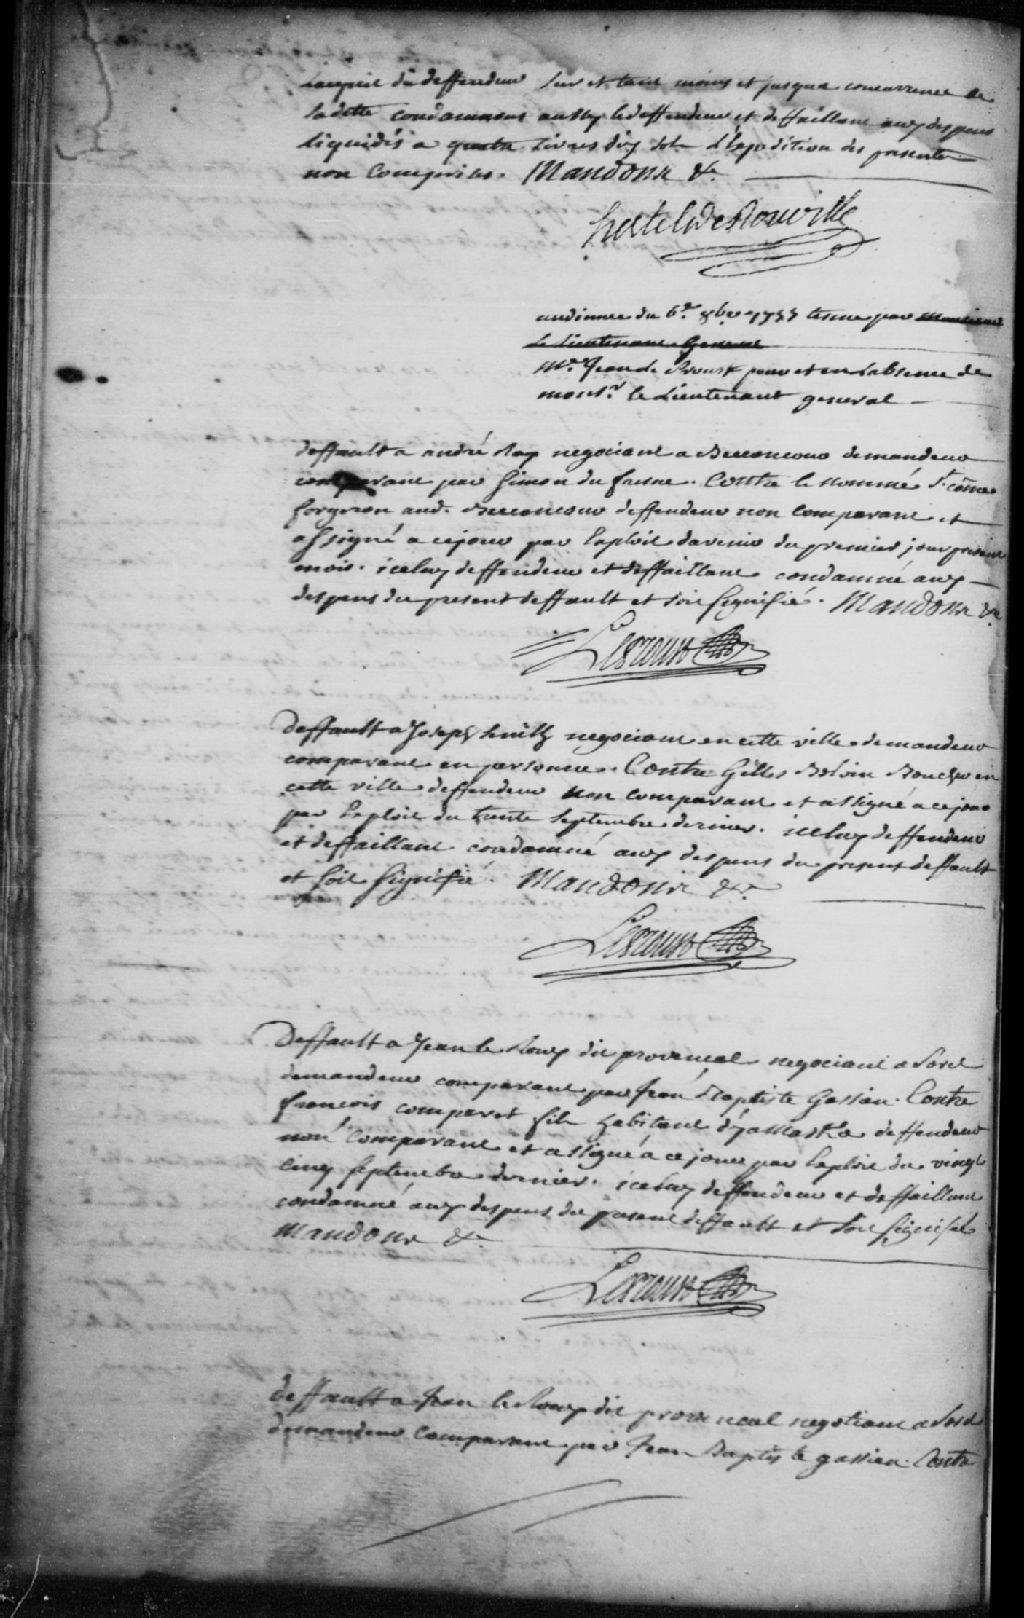 deffendeur sur et tant moins et jusqua concurrence de
ladette condamnons aussy ledeffendeur et deffaillant aux despens
liquidés a quatre Livres dix sols L'expedition des presentes
non Comprises. Mandons &c.
hertel de Rouville
audience du 6e. 8bre 1755 tenue par
Le Lieutenant General
Me. Jean Le pour et en Labsence de
monsr. le Lieutenant general
deffault a andré Roy negociant a Becancour demandeur
comparant par Simon du fresne. Contre le nommé St. Côme
forgeron aud. Becancour deffendeur non Comparant et
assigné a cejour par Exploit davenir du premier jour present
mois. iceluy deffendeur et deffaillant condamné aux
despens du present deffault et soit signifié. Mandons &c.
Deffault a Joseph negociant en cette ville demandeur
comparant en personne. Contre Gilles Bolvin Boucher en
cette ville deffendeur non comparant et assigné a ce jour
par Exploit du trente septembre dernier. iceluy deffendeur
et deffaillant condamné aux despens du present deffault
et soit signifié. Mandons &c.
Deffault a Jean le Roux dit provencal negociant a Sorel
demandeur comparant par Jean Baptiste Gassien. Contre
francois comparet fils habitant d'yamaska deffendeur
non Comparant et assigné a ce jour par Exploit du vingt
cinq septembre dernier. iceluy deffendeur et deffaillant
condamné aux despens du present deffault et soit signifié
Mandons &c.
deffault a Jean le Roux dit provencal negotiant a Sorel
demandeur Comparant par Jean Baptiste gassien. Contre